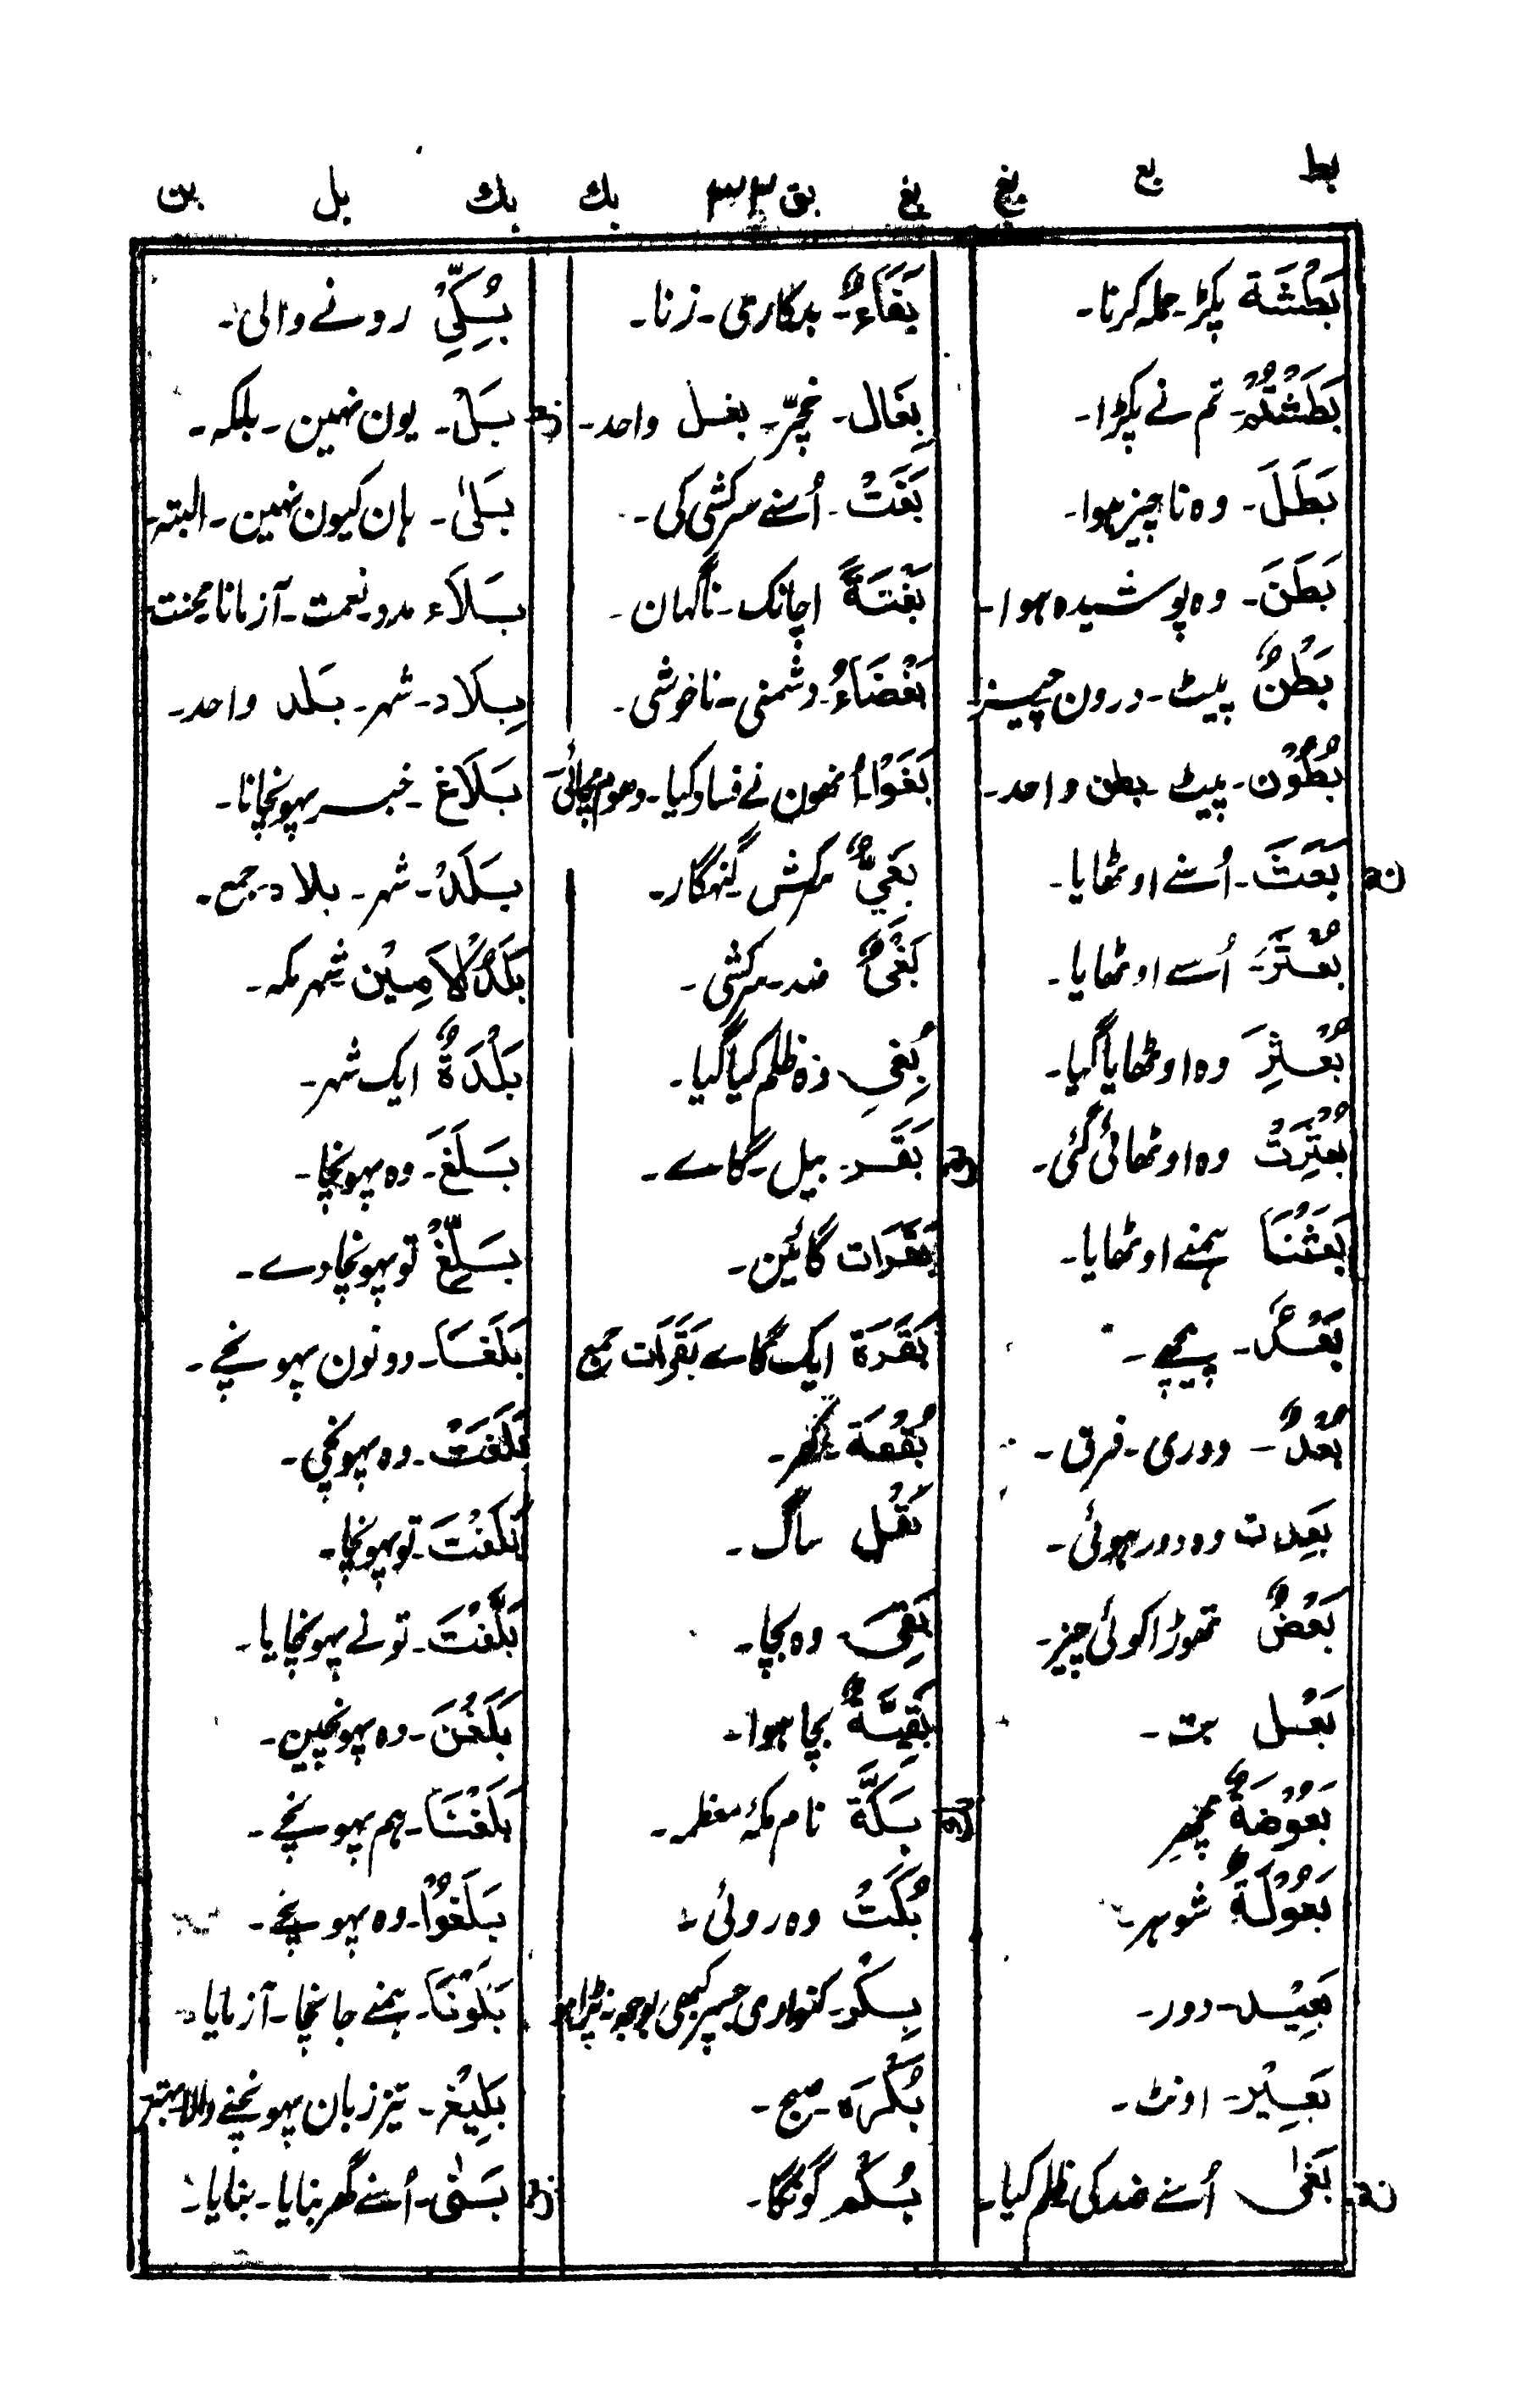 بط بع بغ بغ بق ٣٣ بك بك بل بن
بَطْشَة پکڑ۔ حملہ کرنا۔
بَطَشْتُمْ۔ تم نے پکڑا۔
بَطَلَ۔ وہ ناچیز ہوا۔
بَطَنَ۔ وہ پوشیدہ ہوا۔
بَطْنٌ پیٹ۔ درون چیز
بُطُوْن۔ پیٹ۔ بطن واحد۔
بَعَثَ۔ اُسنے اوٹھایا۔
بَعْثَرَ۔ اُسے اوٹھایا۔
بُعْثِرَ وہ اوٹھایا گیا۔
بُعْثِرَتْ وہ اوٹھائی گئی۔
بَعَثْنَا ہمنے اوٹھایا۔
بَعْدَ۔ پیچھے۔
بُعْدٌ۔ دوری۔ فرق۔
بَعِدت وہ دور ہوئی۔
بَعْضٌ تھوڑا کوئی چیز۔
بَعْل بت۔
بَعُوْضَةٌ مچھر
بُعُوْلَةٌ شوہر۔
بَعِيْد۔ دور۔
بَعِيْر۔ اونٹ۔
بَغٰى اُسنے ضد کی ظلم کیا۔
بِغَآءٌ۔ بدکاری۔ زنا۔
بِغَال۔ خچّر۔ بغل واحد۔
بَغَتْ۔ اُسنے سرکشی کی۔
بَغْتَةً اچانک۔ ناگہان۔
بَغْضَاءُ۔ دشمنی۔ ناخوشی۔
بَغَوْا۔ اُنھون نے فساد کیا۔ دھوم مچائی۔
بَغِيٌّ سرکش گنہگار۔
بَغْیٌ ضد۔ سرکشی۔
بُغِیَ وہ ظلم کیا گیا۔
بَقَر۔ بیل۔ گاے۔
بَقَرَات گائین۔
بَقَرَة ایک گاے بَقَرَات جمع
بُقْعَة۔
بَقْل ساگ۔
بَقِیَ وہ بچا۔
بَقِيَّةٌ بچا ہوا۔
بَكَّة نام مکۂ معظمہ۔
بَكَتْ وہ روئی۔
بِكْر۔ کنواری جسپر کبھی بوجھ نہ پڑا ہو
بُكْرَة۔ صبح۔
بُكْم گونگا۔
بُكِيّ رونے والی۔
بَلْ۔ یون نہین۔ بلکہ۔
بَلٰى۔ ہان کیون نہین۔ البتہ۔
بَلَاء مدد۔ نعمت۔ آزمانا محنت
بِلَاد۔ شہر۔ بَلد واحد۔
بَلَاغ۔ خبر پہونچانا۔
بَلَدْ۔ شہر۔ بلاد۔ جمع۔
بَلَدُ الْاَمِيْن۔ شہر مکہ۔
بَلْدَةٌ ایک شہر۔
بَلَغَ۔ وہ پہونچا۔
بَلِّغْ تو پہونچا دے۔
بَلَغَا۔ دونون پہونچے۔
بَلَغَتْ۔ وہ پہونچی۔
بَلَغْتَ۔ تو پہونچا۔
بَلَّغْتَ۔ تونے پہونچایا۔
بَلَغْنَ۔ وہ پہونچین۔
بَلَغْنَا۔ ہم پہونچے۔
بَلَغُوْا۔ وہ پہونچے۔
بَلَوْنَا۔ ہمنے جانچا۔ آزمایا۔
بَلِيْغ۔ تیز زبان پہونچنے والا۔
بَنٰى۔ اُسنے گھر بنایا۔ بنایا۔